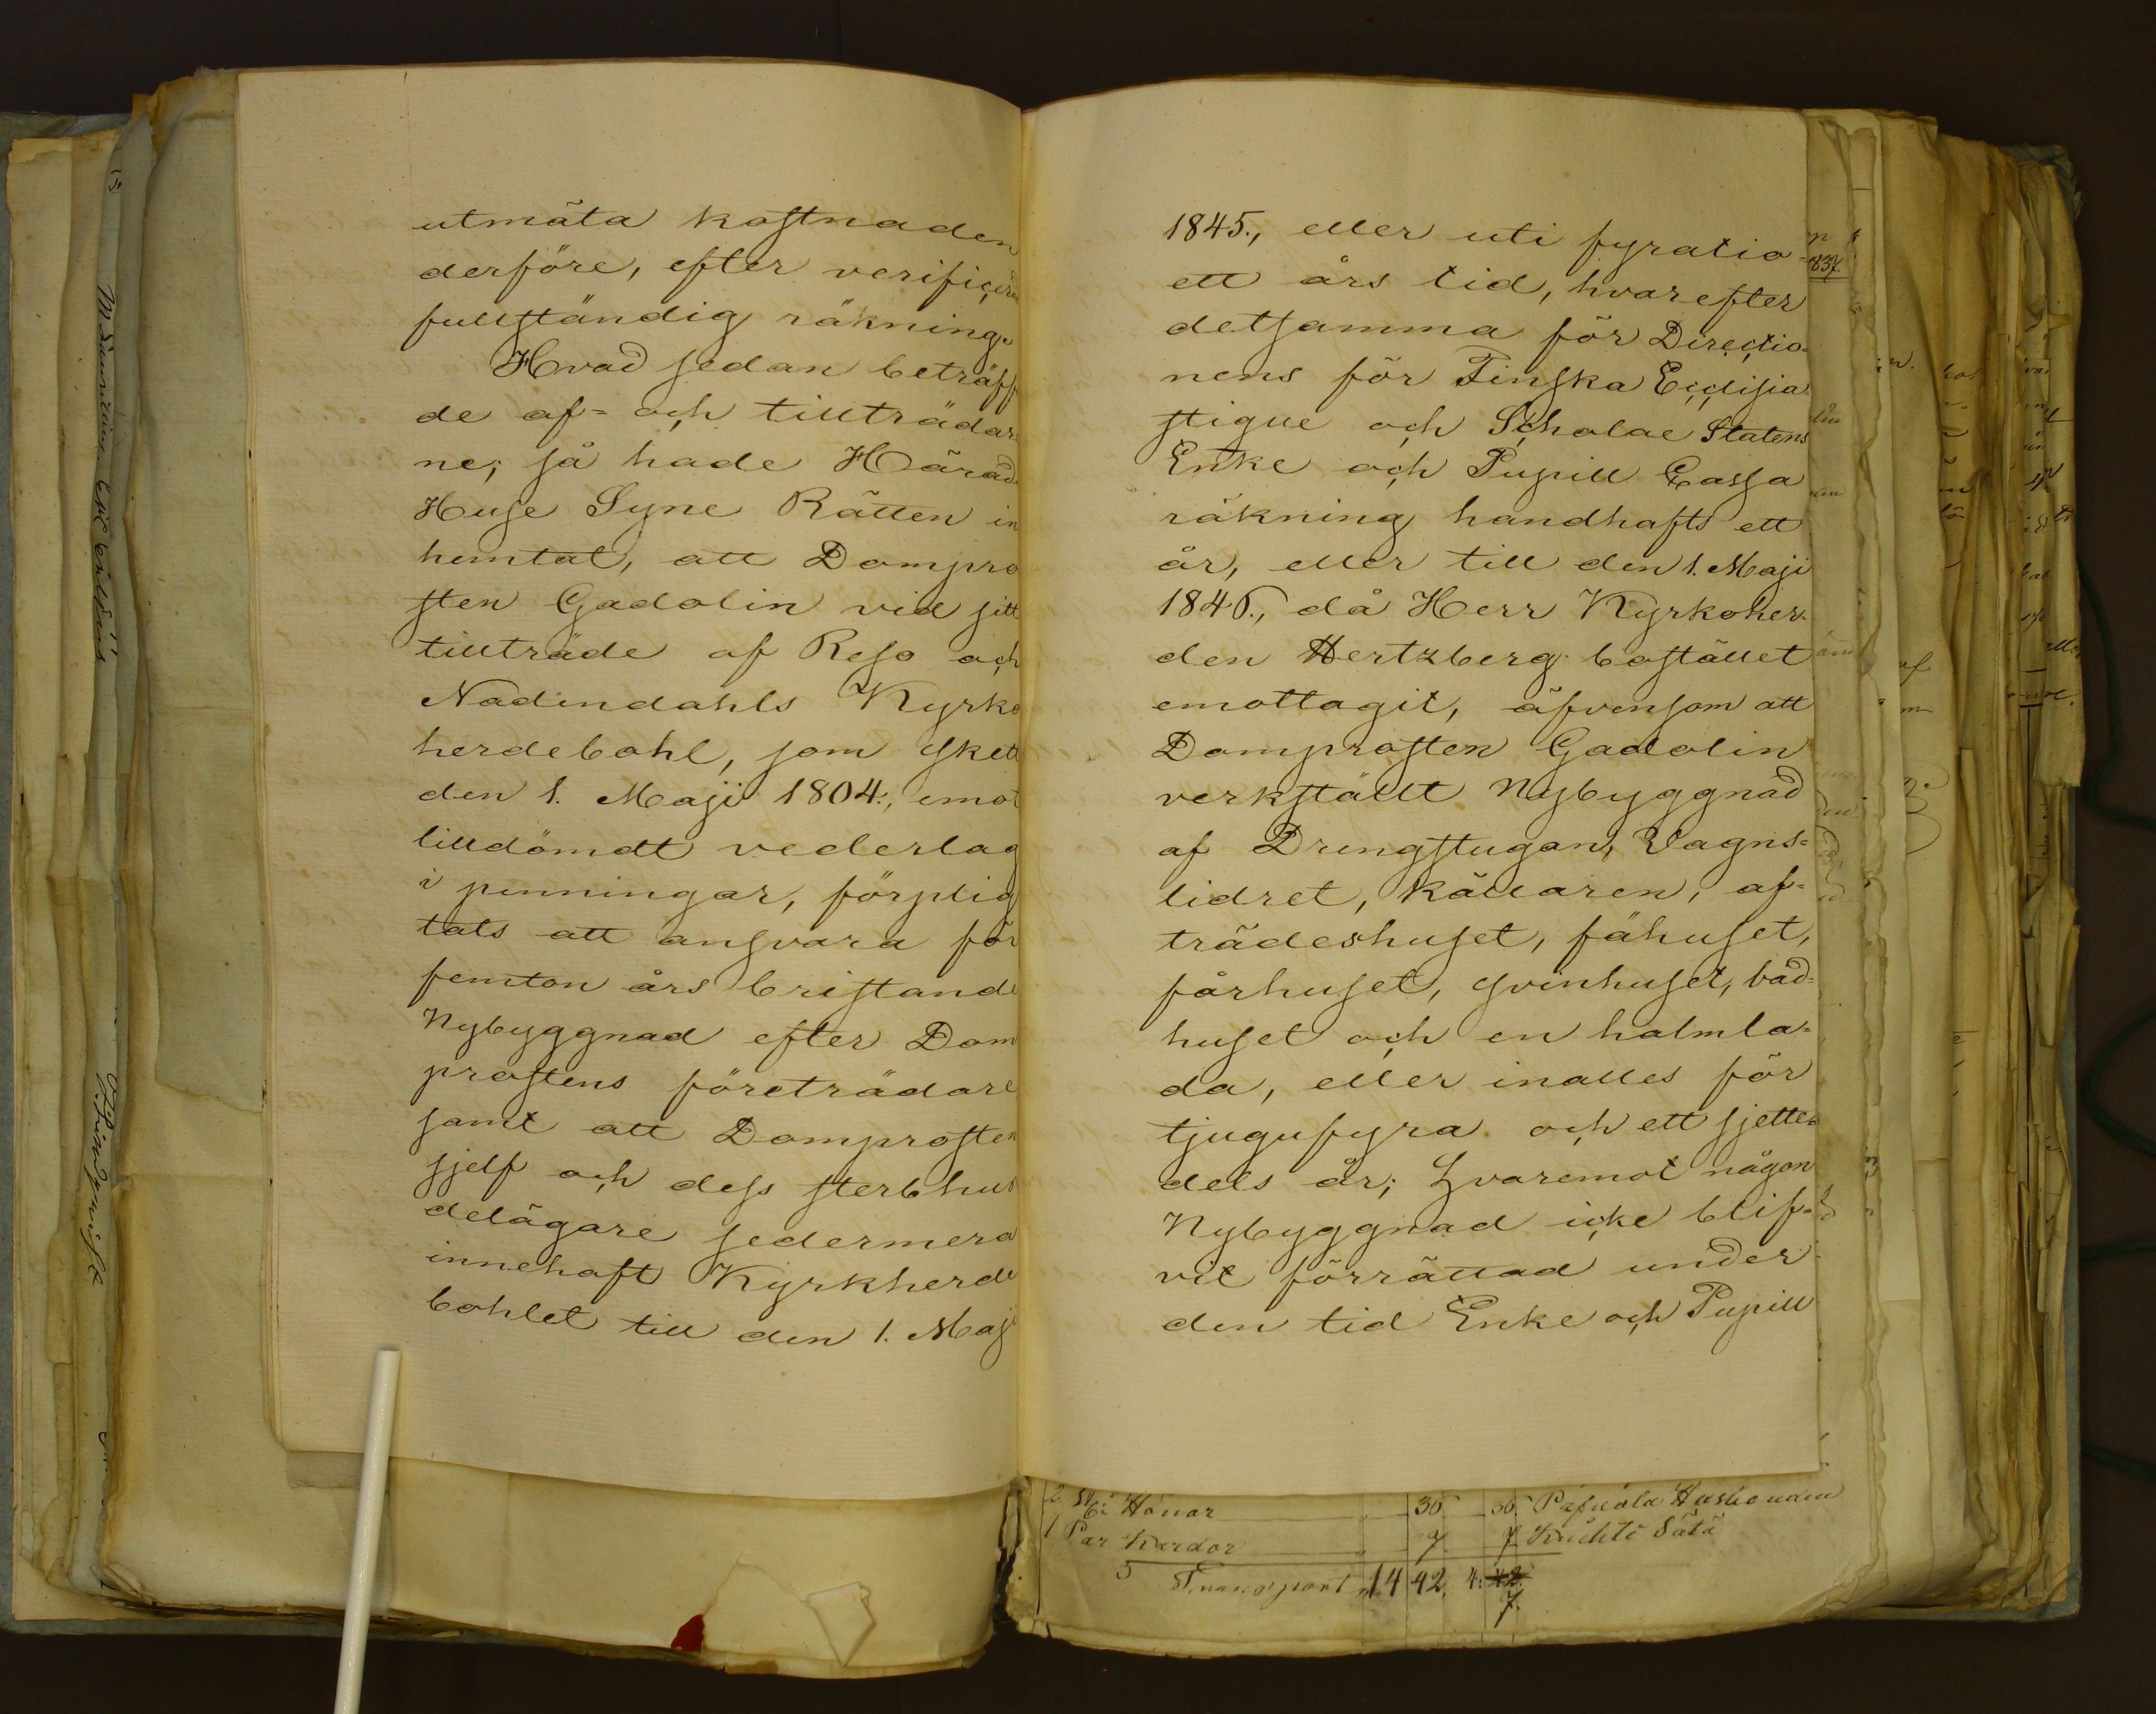 utmäta kostnaden
derföre, efter verificera
fullständig räkning.
Hvad sedan beträff
de af= och tillträdar
ne; så hade Härad
Huse Syne Rätten in
hemtat, att Dompro
sten Gadolin vid sitt
tillträde af Reso och
Nådendahls Kyrko
herdebohl, som skett
den 1. Maji 1804., emot
tilldömdt vederlag
i penningar, förplig
tats att ansvara för
femton års bristande
Nybyggnad efter Dom
prostens företrädare
samt att Domprosten
sjelf och dess sterbhus
delägare sedermera
innehaft Kyrkherde
bohlet till den 1. Maji
1845., eller uti fyratio=
ett års tid, hvarefter
detsamma för Directio=
nens för Finska Ecclisia
stique och Scholae Statens
Enke och Pupill Cassa
räkning handhafts ett
år, eller till den 1. Maji
1846., då Herr Kyrkoher=
den Hertzberg bostället
emottagit, äfvensom att
Domprosten Gadolin
verkställt Nybyggnad
af Drengstugan, Vagns=
lidret, Källaren, af=
trädeshuset, fähuset,
fårhuset, svinhuset, bad=
huset och en halmla=
da, eller inalles för
tjugufyra och ett sjette=
dels år; hvaremot någon
Nybyggnad icke blif=
vit förrättad under
den tid Enke och Pupill
2 St: Hönor 36 36.
1 Par Kardor 7 7
Transport 14 42 4: 42.
7.